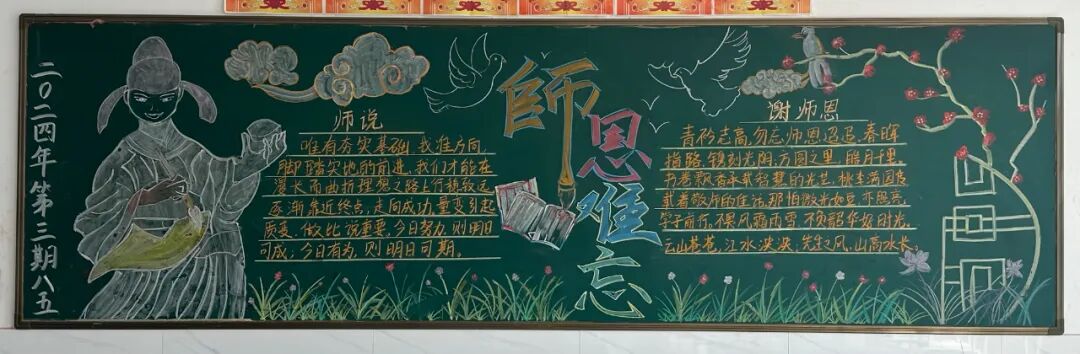 二〇二四年第三期八五
师说
唯有夯实基础,找准方向,
脚踏实地的前进,我们才能在
漫长而曲折理想之路上行稳致远
逐渐靠近终点,走向成功量变引起
质变,做比说重要,今日努力,则明日
可成;今日有为,则明日可期。
師恩难忘
谢师恩
青衿志高,勿忘师恩迢迢,春晖
指路,镌刻光阴,方圆之里,皓月千里,
书卷飘香承载智慧的光芒,桃李满园
载着敬师的佳话,那怕微光如豆,亦照亮
学子前行,不畏风霜雨雪,不负韶华好时光,
云山苍苍,江水泱泱,先生之风,山高水长。